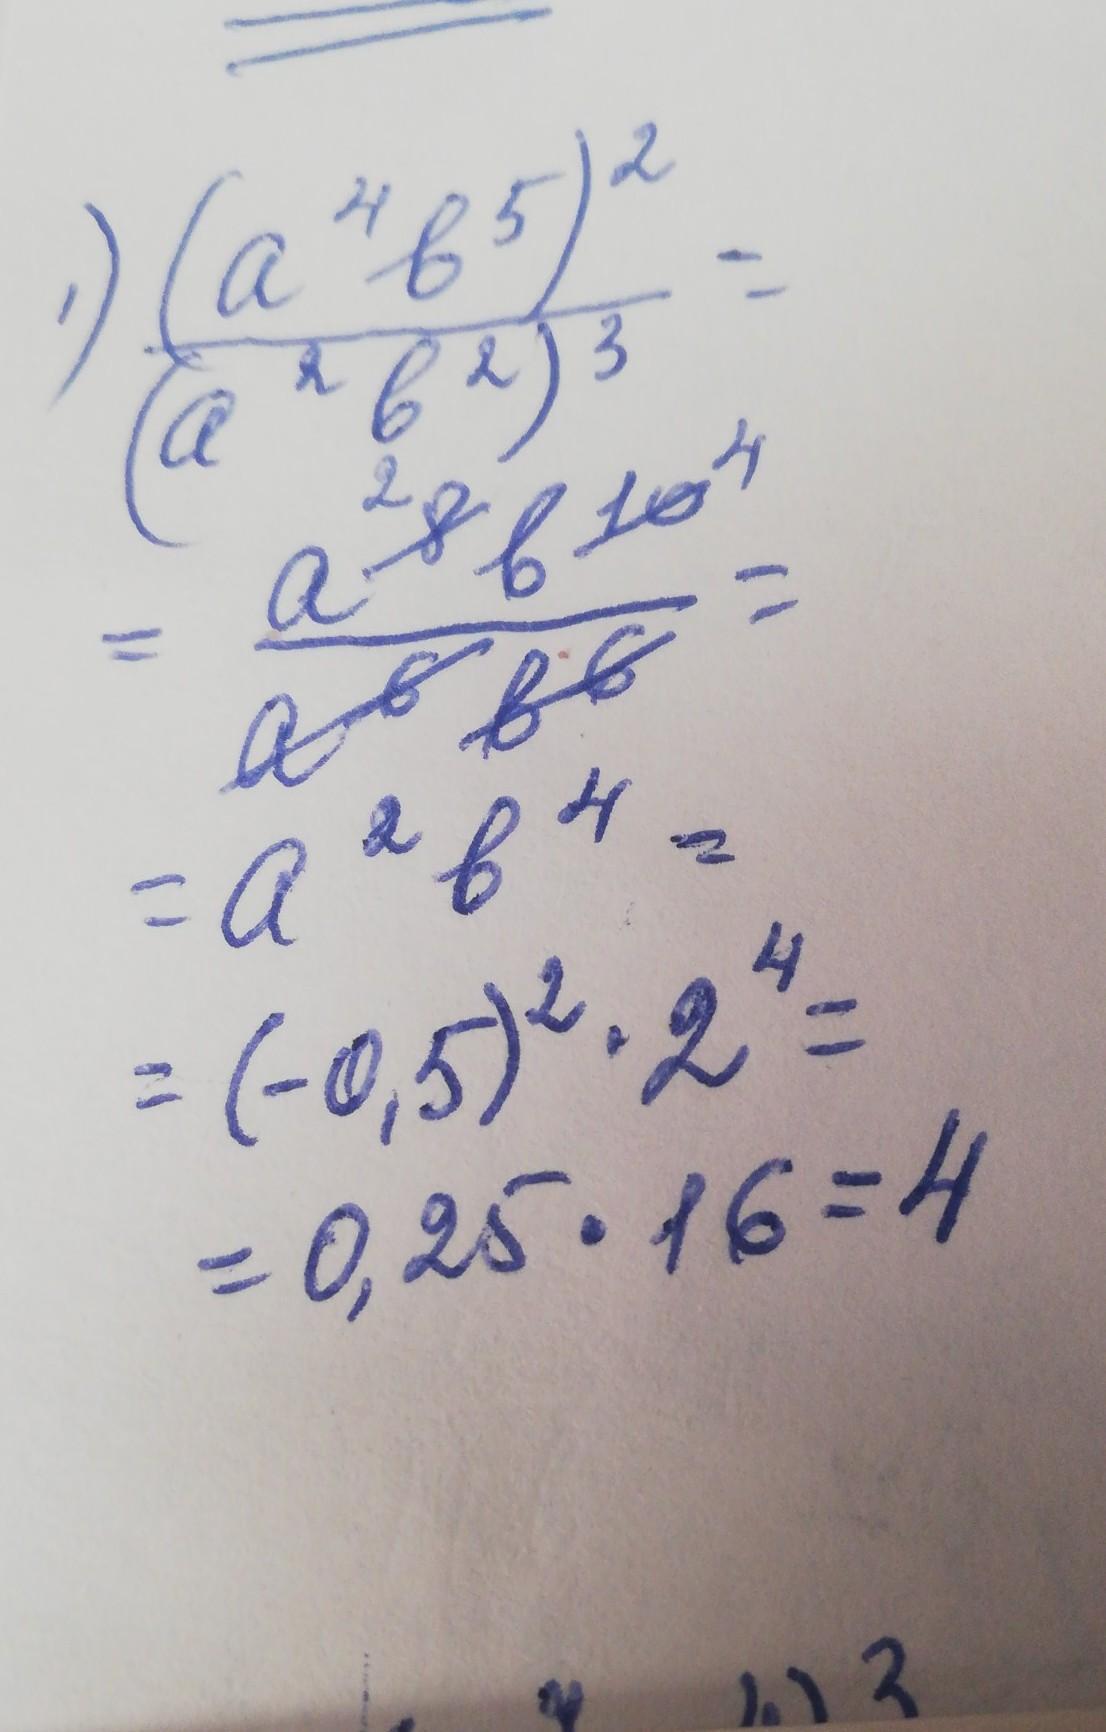 1) (a⁴b⁵)² / (a²b²)³ =
= a⁸² b¹⁰⁴ / a⁶ b⁶ =
= a² b⁴ =
= (-0,5)² · 2⁴ =
= 0,25 · 16 = 4